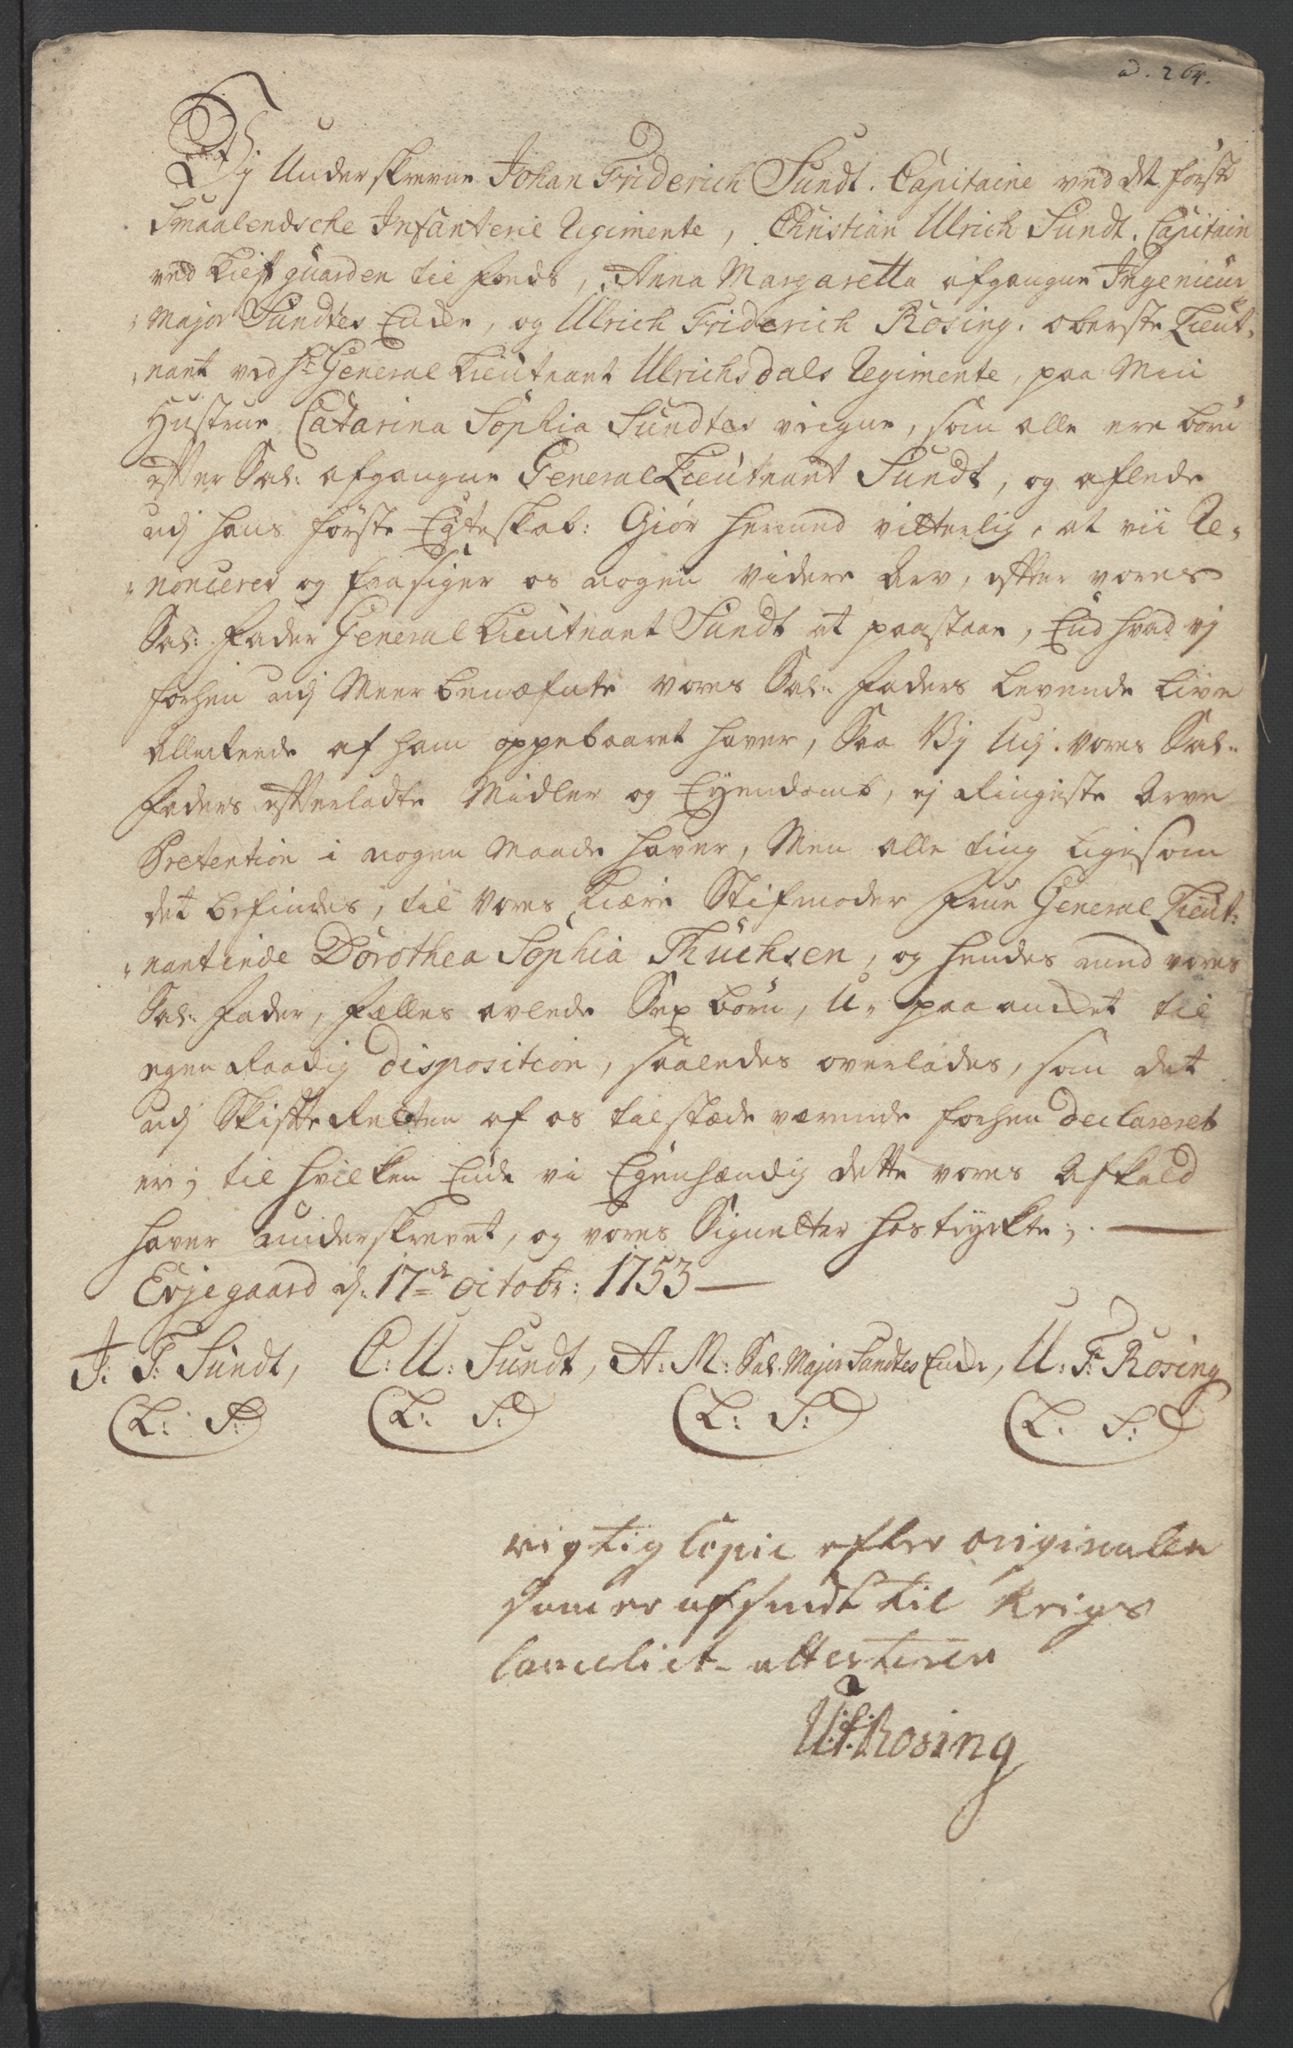 ad. 264.
Vj Underskrevne Johan Friderich Sundt. Capitaine ved det første
Smaalendsche Infanterie Regimente, Christian Ulrich Sundt. Capitain
ved Lief guarden til fods, Anna Margaretta afgangne Ingenieur
Major Sundtes Encke, og Ulrich Friderich Rosing. oberste Lieut-
nant ved Hr. General Lieutnant Ulrichsdals Regimente, paa Min
Hustrue Catarina Sophia Sundtes veigne, som alle ere børn
efter Sal: afgangne General Lieutnant Sundt, og aflede
udj hans første Egteskab: Giør hermed vitterlig, at vii Re-
noncerer og fraasiger os nogen videre Arv, efter vores
Sal: Fader General Lieutnant Sundt at paastaae, End hvad vj
forhen udj Meerbenæfnte vores Sal: Faders Levende Live
allereede af ham oppebaaret haver, Saa Vj Udj vores Sal:
Faders efterladte Midler og Eyendomb, ej Ringeste Arve
Pretention i nogen Maade haver, Men alle ting Ligesom
det befindes, til Vores kiære Stifmoder Frue General Lieut-
nantinde Dorothea Sophia Thuchsen, og hendes med vores
Sal: Fader, fælles avlede Sex børn, U-paaandet til
egen Raadig disposition, saaledes overlades, som det
udj Skifte Retten af os tilstæde værende forhen declareret
er; til hvilken Ende vi Egenhændig dette vores Afkald
haver underskrevet, og vores Signetter hostrygte;
Evjegaard d. 17de octobr: 1753
J: F: Sundt, C: U: Sundt, A: M: Sal. Major Sundtes Encke, U: F: Rosing
(L: S:) (L: S:) (L: S:) (L: S:)
rigtig Copie efter originalen
som er afsendt til Krigs
Cancelliet attesterer
U:F:Rosing